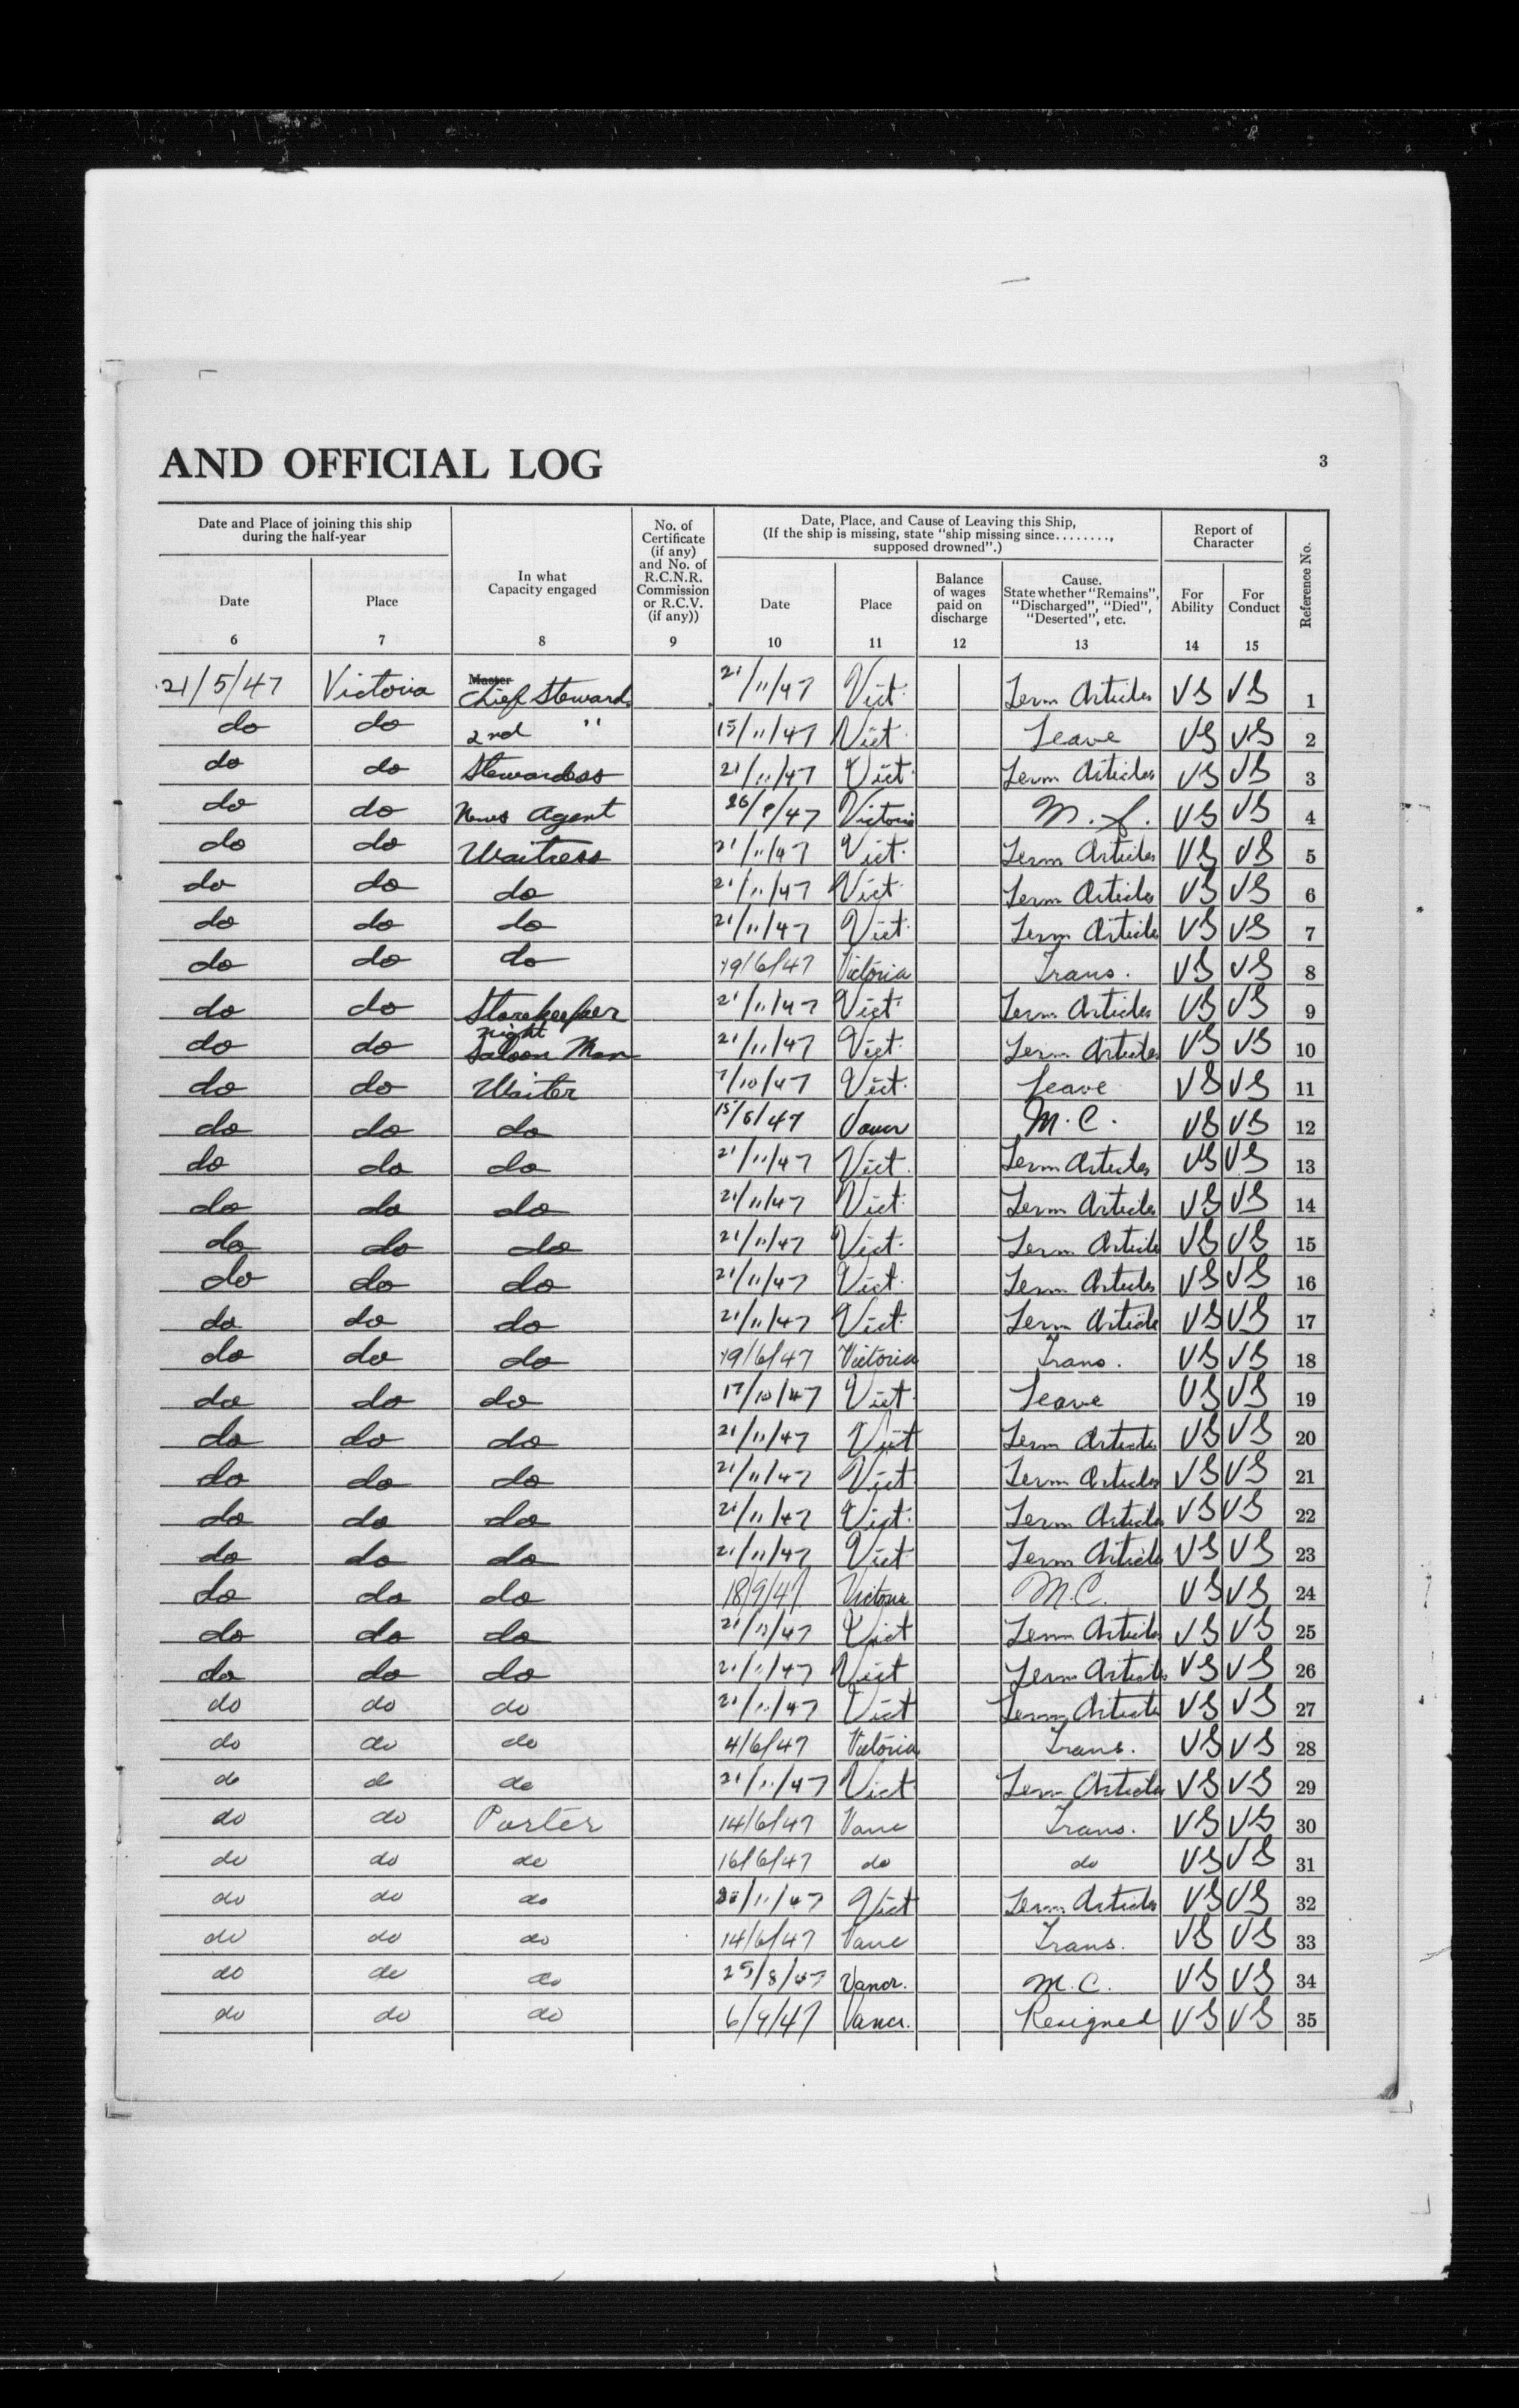 AND OFFICIAL LOG 3
Date and Place of joining this ship
during the half-year
Date
6
Place
7
In what
Capacity engaged
8
No. of
Certificate
(if any)
and No. of
R.C.N.R.
Commission
or R.C.V.
(if any))
9
Date, Place, and Cause of Leaving this Ship,
(If the ship is missing, state "ship missing since........,
supposed drowned".)
Date
10
Place
11
Balance
of wages
paid on
discharge
12
Cause.
State whether "Remains",
"Discharged", "Died",
"Deserted", etc.
13
Report of
Character
For
Ability
14
For
Conduct
15
Reference No.
Master
21/5/47 Victoria Chief Steward 21/11/47 Vict. Term Articles VG VG 1
do do 2nd " 15/11/47 Vict. Leave VG VG 2
do do Stewardess 21/11/47 Vict. Term Articles VG VG 3
do do News Agent 26/8/47 Victoria VG VG 4
do do Waitress 21/11/47 Vict. Term Articles VG VG 5
do do do 21/11/47 Vict. Term Articles VG VG 6
do do do 21/11/47 Vict. Term Article VG VG 7
do do do 19/6/47 Victoria Trans. VG VG 8
do do Storekeeper 21/11/47 Vict. Term Articles VG VG 9
do do Night Saloon Man 21/11/47 Vict. Term Articles VG VG 10
do do Waiter 7/10/47 Vict. Leave VG VG 11
do do do 15/6/47 Vancr M.C. VG VG 12
do do do 21/11/47 Vict. Term Articles VG VG 13
do do do 21/11/47 Vict. Term Articles VG VG 14
do do do 21/11/47 Vict. Term Article VG VG 15
do do do 21/11/47 Vict. Term Articles VG VG 16
do do do 21/11/47 Vict. Term Article VG VG 17
do do do 19/6/47 Victoria Trans. VG VG 18
do do do 17/10/47 Vict. Leave VG VG 19
do do do 21/11/47 Vict Term Articles VG VG 20
do do do 21/11/47 Vict Term Articles VG VG 21
do do do 21/11/47 Vict. Term Articles VG VG 22
do do do 21/11/47 Vict. Term Article VG VG 23
do do do 18/9/47 Victoria M.C. VG VG 24
do do do 21/11/47 Vict Term Articles VG VG 25
do do do 21/11/47 Vict Term Articles VG VG 26
do do do 21/11/47 Vict Term Article VG VG 27
do do do 4/6/47 Victoria Trans. VG VG 28
do do do 21/11/47 Vict Term Articles VG VG 29
do do Porter 14/6/47 Vanc Trans. VG VG 30
do do do 16/6/47 do do VG VG 31
do do do /11/47 Vict Term Articles VG VG 32
do do do 14/6/47 Vanc Trans. VG VG 33
do do do 25/8/47 Vancr. M.C. VG VG 34
do do do 6/9/47 Vancr. Resigned VG VG 35